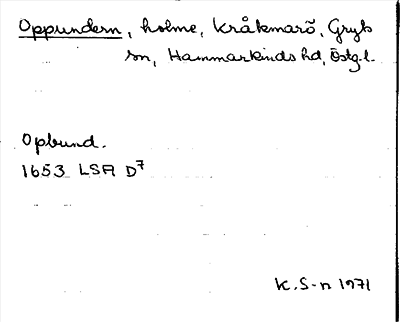 Oppundern, holme, Kråkmarö, Gryts
sn, Hammarkinds hd, Östg.l.
Opbund.
1653 LSA D7
K.S-n 1971